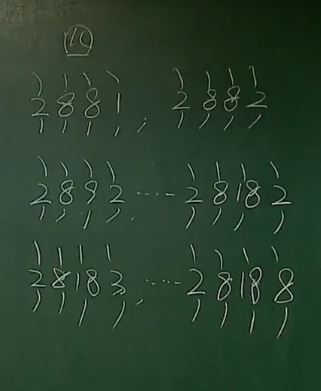 2 8 8 1 , 2 8 8 2
2 8 9 2 ····· 2 8 18 2
2 8 18 3 , ····· 2 8 18 8